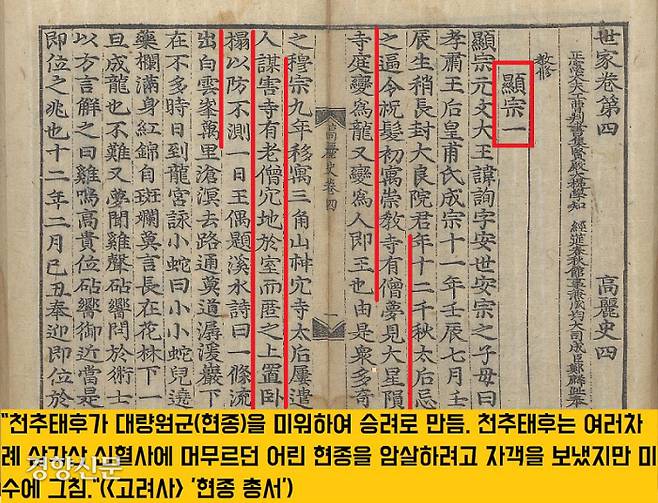 世家卷第四 高麗史四
正憲大夫工曹判書集賢殿大提學知 經筵春秋館事兼成均大司成臣鄭麟趾奉
敎修
顯宗一
顯宗元文大王諱詢字安世安宗之子母曰
孝肅王后皇甫氏成宗十一年壬辰七月壬
辰生稍長封大良院君年十二千秋太后忌
之逼令祝髮初寓崇敎寺有僧夢見大星隕
寺庭變爲龍又變爲人即王也由是衆多奇
高麗史卷四 一
之穆宗九年移寓三角山神穴寺太后屢遣
人謀害寺有老僧穴地於室而匿之上置臥
榻以防不測一日王偶題溪水詩曰一條流
出白雲峯萬里滄溟去路通莫道潺湲巖下
在不多時日到龍宮詠小蛇曰小小蛇兒遶
藥欄滿身紅錦自斑斕莫言長在花林下一
旦成龍也不難又夢聞雞聲砧響問於術士
以方言解之曰雞鳴高貴位砧響御近當是
即位之兆也十二年二月己丑奉迎即位
"천추태후가 대량원군(현종)을 미워하여 승려로 만듬. 천추태후는 여러차
례 삼각산 신혈사에 머무르던 어린 현종을 암살하려고 자객을 보냈지만 미
수에 그침."(<고려사> '현종 총서')
경향신문